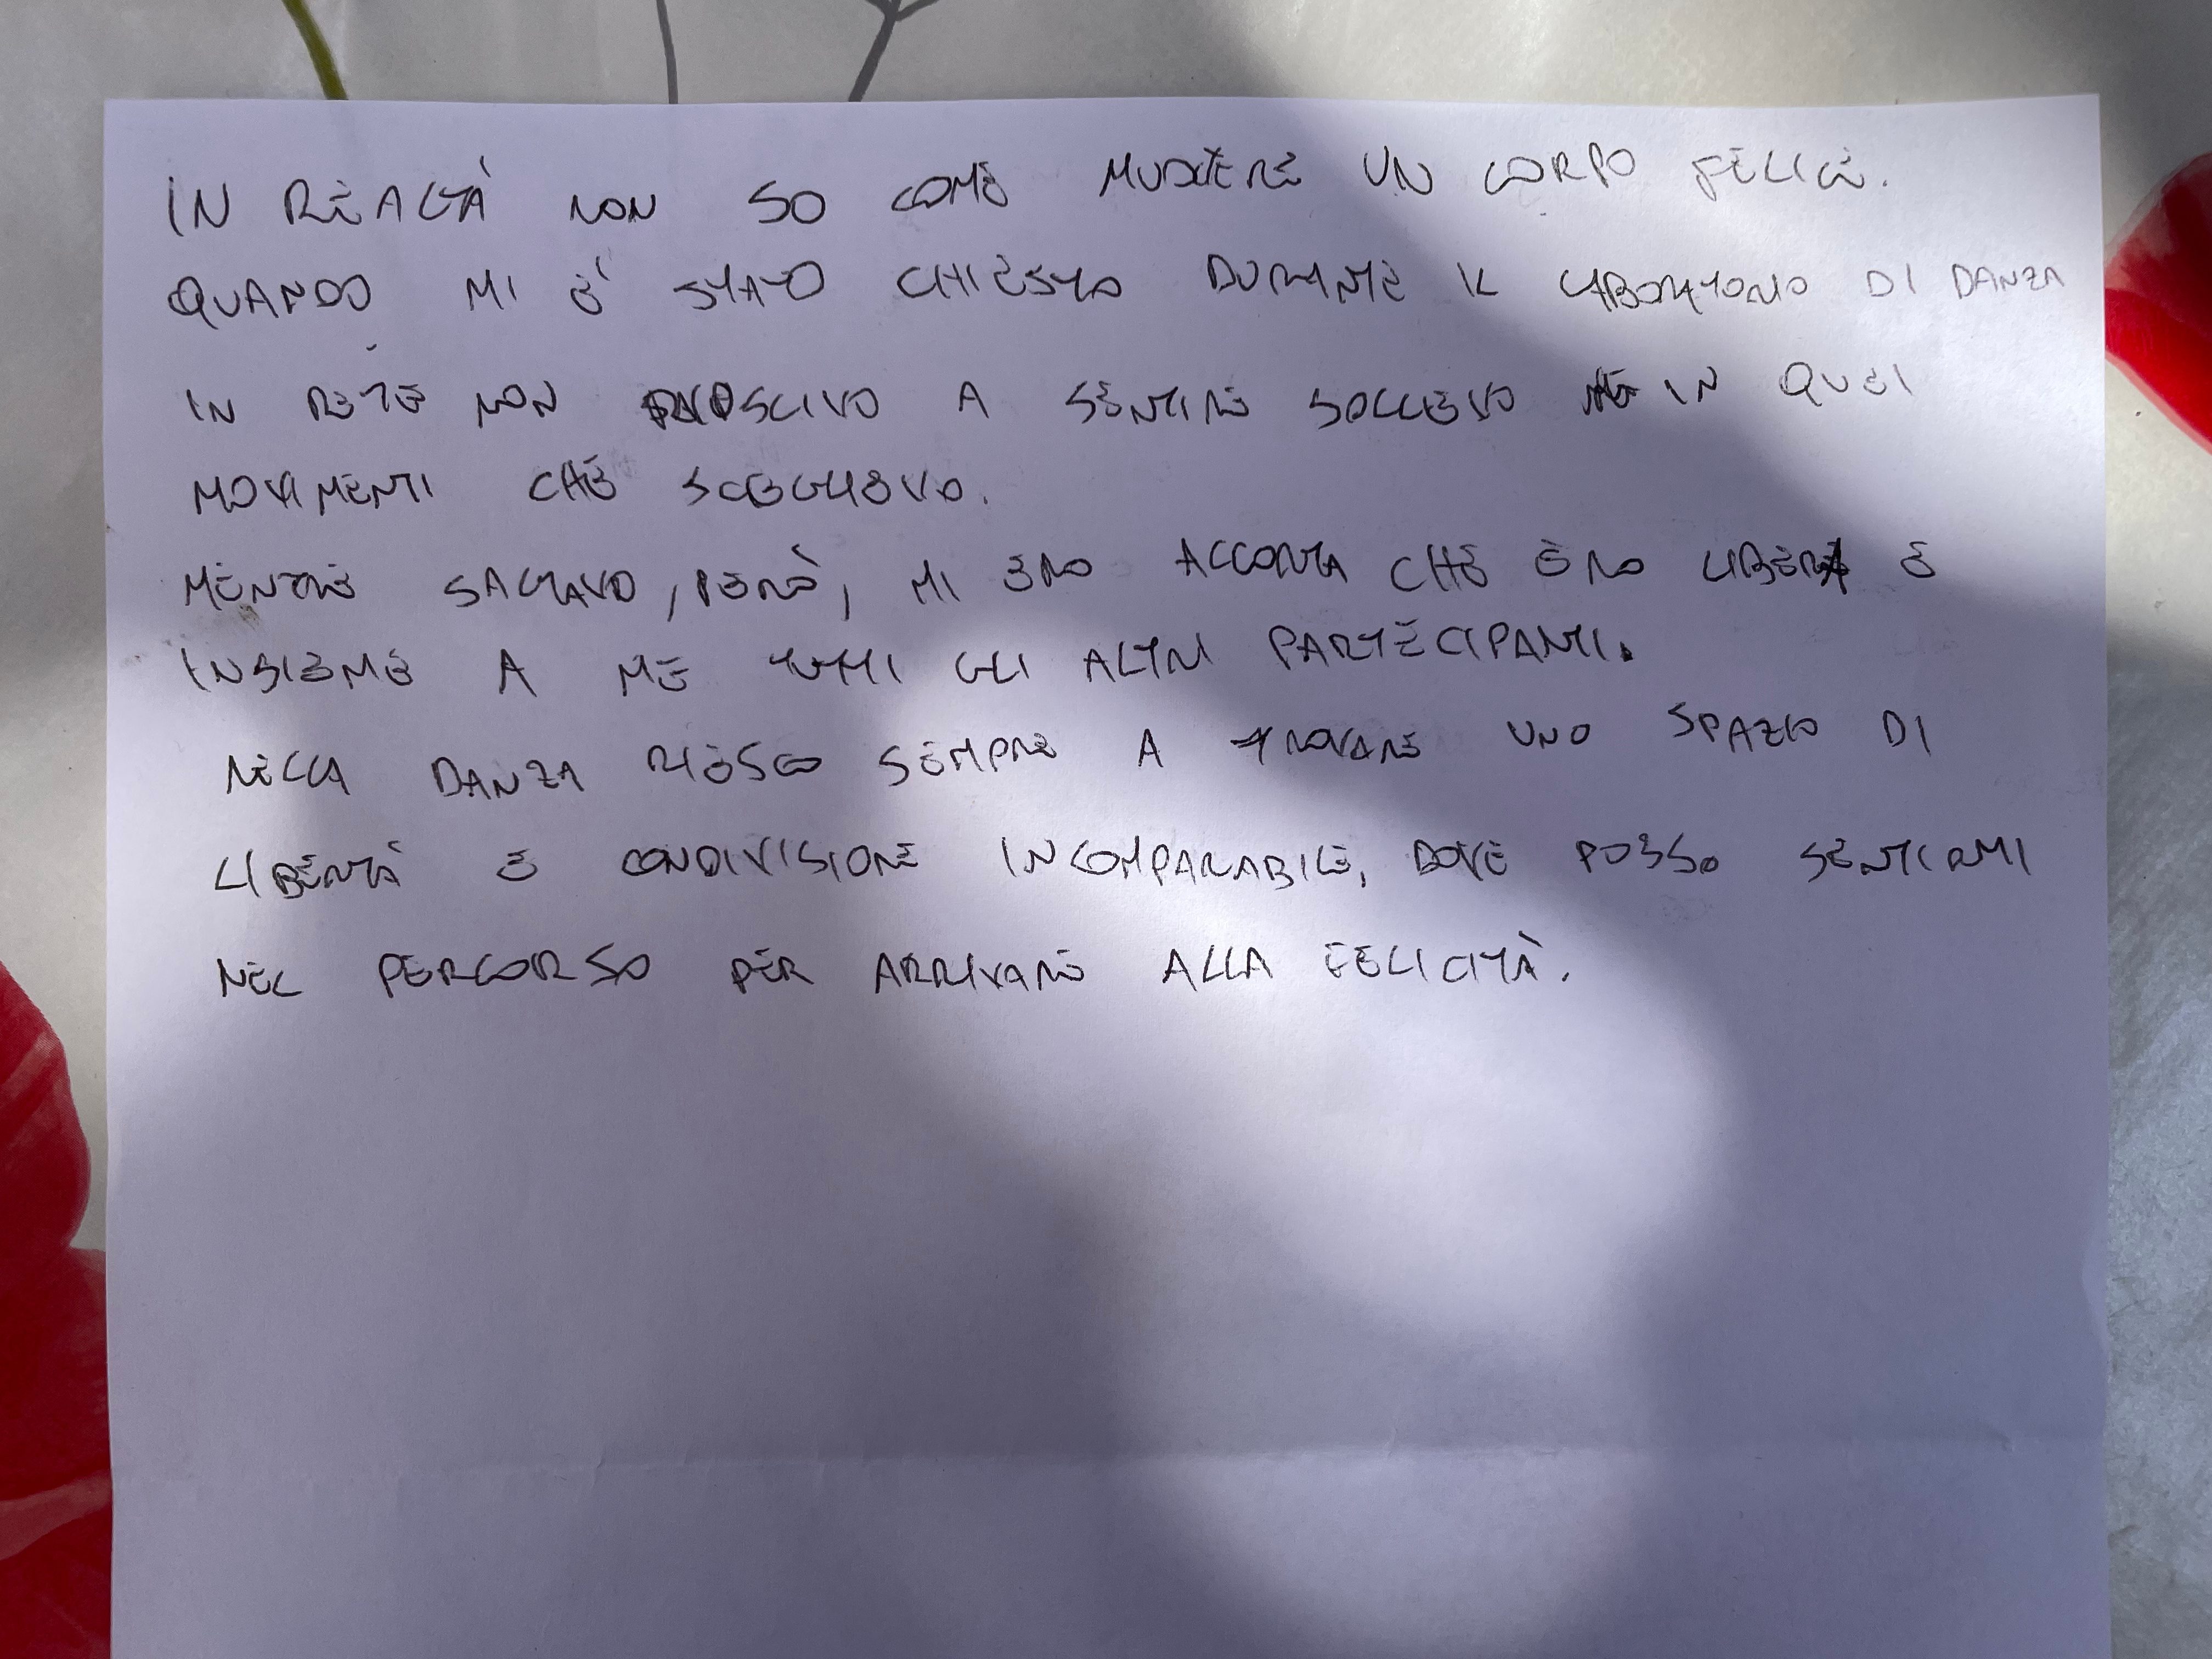 IN REALTÀ NON SO COME MUOVERE UN CORPO FELICE.
QUANDO MI È STATO CHIESTO DURANTE IL LABORATORIO DI DANZA
IN RETE NON RIUSCIVO A SENTIRE SOLLIEVO IN QUEI
MOVIMENTI CHE SCEGLIEVO.
MENTRE SALTAVO, PERÒ, MI ERO ACCORTA CHE ERO LIBERA E
INSIEME A ME TUTTI GLI ALTRI PARTECIPANTI.
NELLA DANZA RIESCO SEMPRE A TROVARE UNO SPAZIO DI
LIBERTÀ E CONDIVISIONE INCOMPARABILE, DOVE POSSO SENTIRMI
NEL PERCORSO PER ARRIVARE ALLA FELICITÀ.